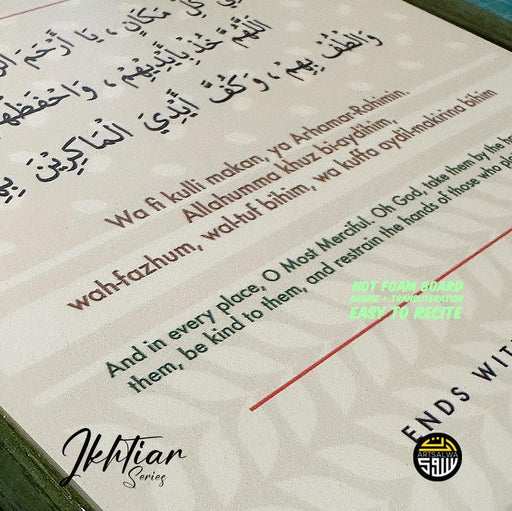 كُلِّ مَكَانٍ ، يَا أَرْحَمَ
اللَّهُمَّ خُذْ بِأَيْدِيهِمْ ، وَاحْفَظْهُمْ
وَالْطُفْ بِهِمْ ، وَكُفَّ أَيْدِيَ الْمَاكِرِيْنَ بِهِ
Wa fi kulli makan, ya Arhamar-Rahimin.
Allahumma khuz bi-aydihim,
wah-fazhum, wal-tuf bihim, wa kuffa aydil-makirina bihim
And in every place, O Most Merciful. Oh God, take them by the
them, be kind to them, and restrain the hands of those who
NOT FOAM BOARD
ARABIC + TRANSLITERATION
EASY TO RECITE
ENDS WIT
Ikhtiar
Series
ARTSALWA